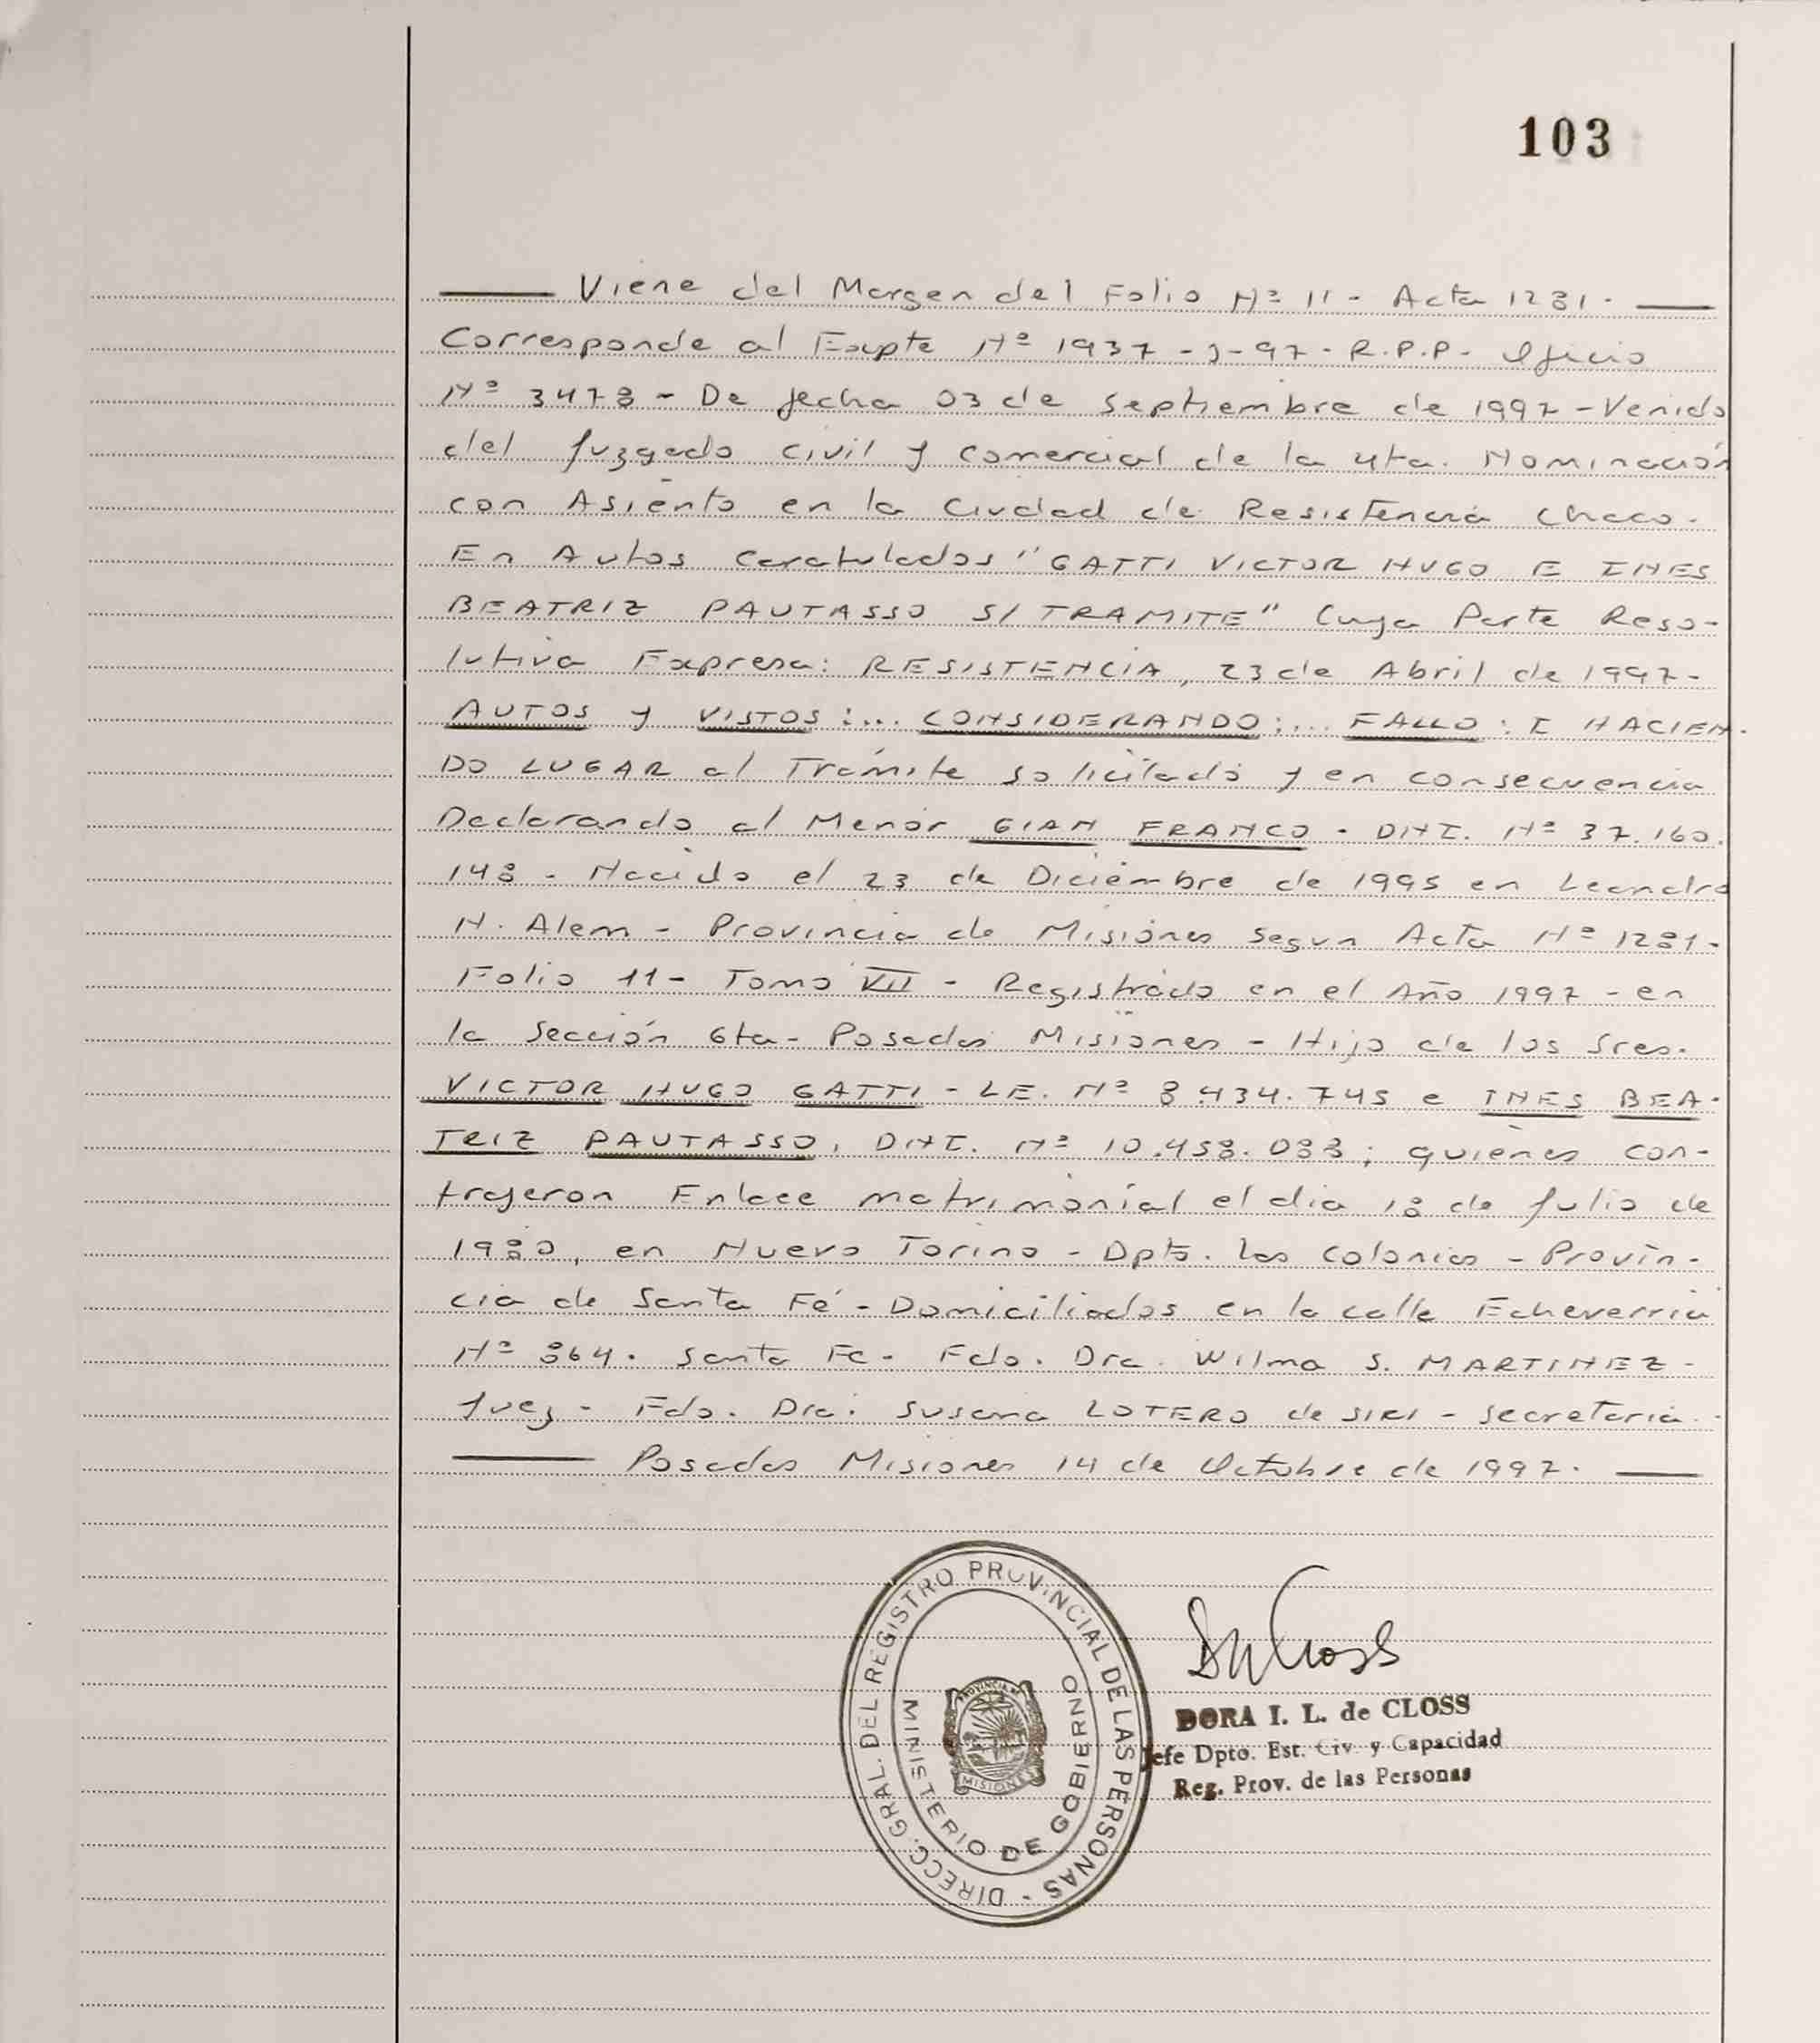 103
Viene del Margen del Folio Nº 11 - Acta 1281.
Corresponde al Expte Nº 1937 - J - 97 - R.P.P. Oficio
Nº 3478 - De fecha 03 de septiembre de 1997 - Venido
del Juzgado Civil y Comercial de la 4ta. Nominación
con Asiento en la Ciudad de Resistencia Chaco.
En Autos Caratulados "GATTI VICTOR HUGO E INES
BEATRIZ PAUTASSO S/ TRAMITE" Cuya Parte Reso-
lutiva Expresa: RESISTENCIA, 23 de Abril de 1997-
AUTOS y VISTOS:... CONSIDERANDO:... FALLO: I HACIEN-
DO LUGAR al Trámite solicitado y en consecuencia
Declarando al Menor GIAN FRANCO - DNI. Nº 37.160.
148 - Nacido el 23 de Diciembre de 1995 en Leandro
N. Alem - Provincia de Misiones segun Acta Nº 1281-
Folio 11 - Tomo VII - Registrado en el Año 1997 - en
la Sección 6ta - Posadas Misiones - Hijo de los Sres.
VICTOR HUGO GATTI - LE. Nº 8.434.745 e INES BEA-
TRIZ PAUTASSO, DNI. Nº 10.458.083; quienes con-
trajeron Enlace matrimonial el dia 18 de Julio de
1980, en Nuevo Torino - Dpto. Las Colonias - Provin-
cia de Santa Fé - Domiciliados en la calle Echeverria
Nº 864. Santa Fe - Fdo. Dra. Wilma S. MARTINEZ -
Juez - Fdo. Dra. Susana LOTERO de SIRI - Secretaria.
Posadas Misiones 14 de Octubre de 1997.
DIRECC. GRAL. DEL REGISTRO PROVINCIAL DE LAS PERSONAS -
MINISTERIO DE GOBIERNO
PROVINCIA DE
MISIONES
DORA I. L. de CLOSS
Jefe Dpto. Est. Civ. y Capacidad
Reg. Prov. de las Personas